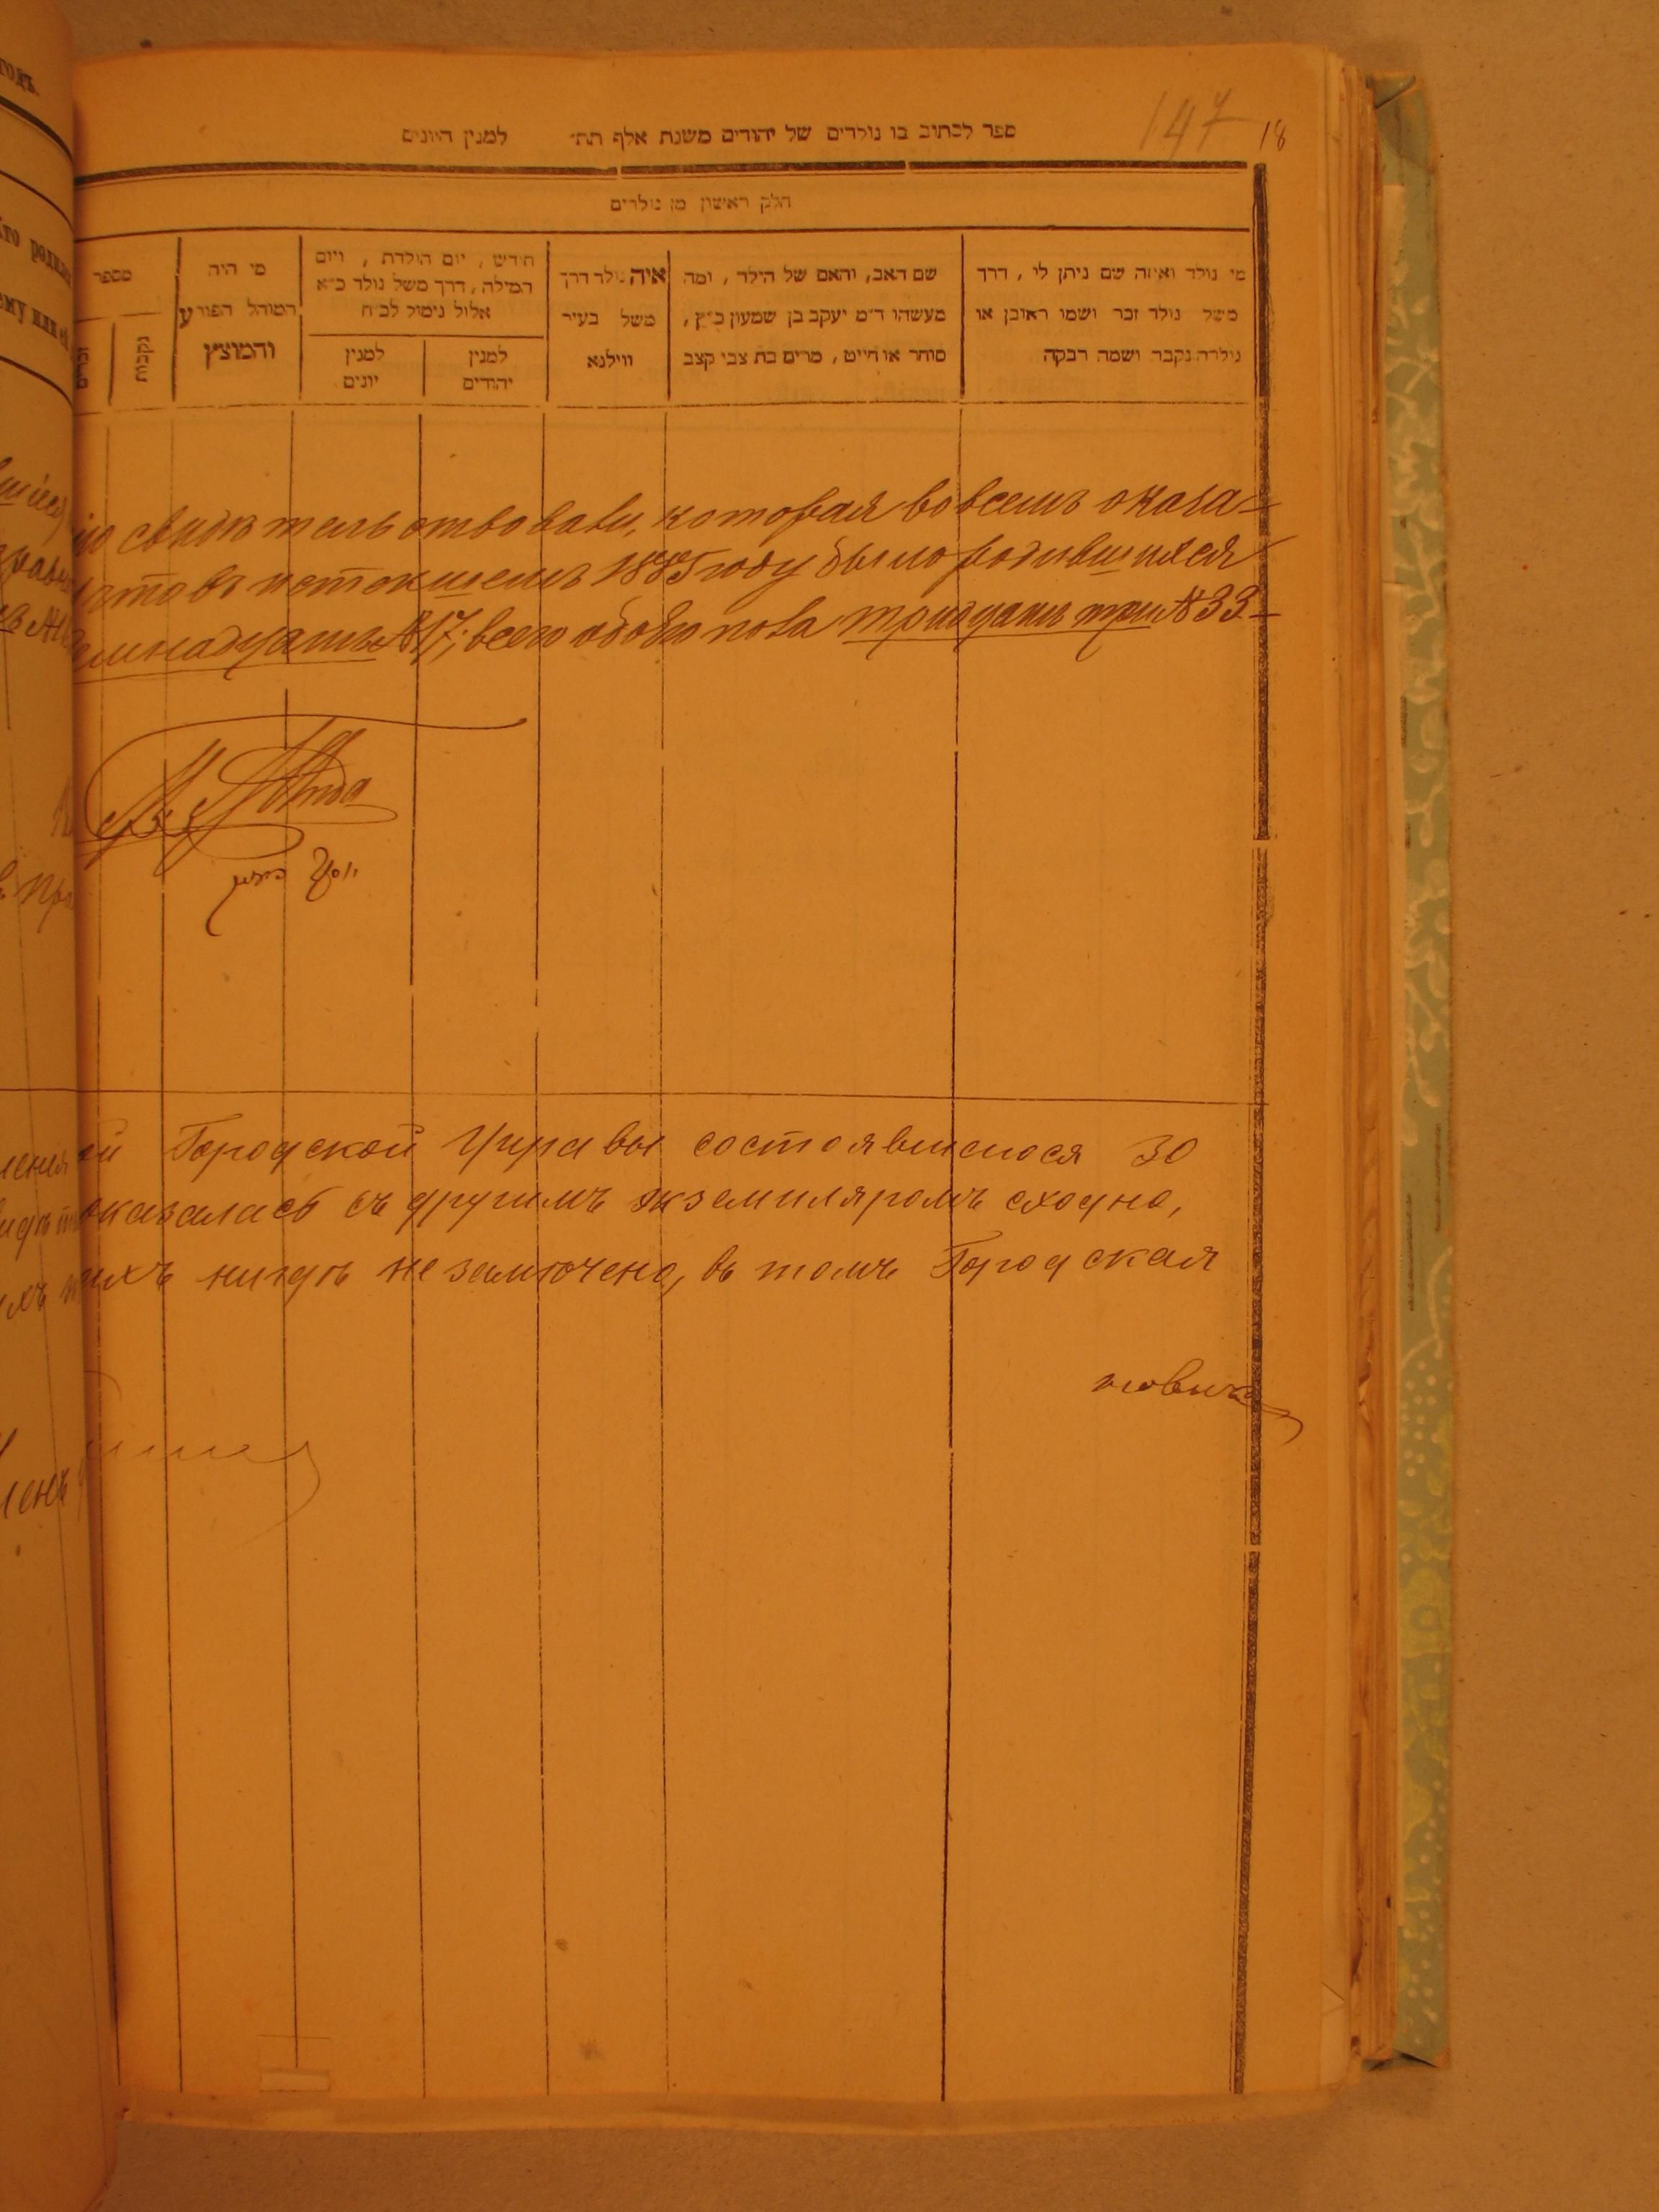 147 18
ספר לכתוב בו נולדים של יהודים משנת אלף תת״ למנין היונים
חלק ראשון מן נולדים
מי נולד ואיזה שם ניתן לו, דרך
משל נולד זכר ושמו ראובן או
נולדה נקבה ושמה רבקה
שם האב, והאם של הילד, ומה
מעשהו ד״מ יעקב בן שמעון כ״ץ,
סוחר או חייט, מרים בת צבי קצב
איה נולד דרך
משל בעיר
ווילנא
חודש, יום הולדת, ויום
המילה, דרך משל נולד כ״א
אלול נימול לכ״ח
למנין
יהודים
למנין
יונים
מי היה
המוהל הפורע
והמוצץ
מספר
נקבות
זכרים
свидетельствовали, которая во всемъ оказа-
что въ истекшемъ 1885 году было родившихся
семнадцать №17, всего обоего пола тридцать три №33
יוסף
Городской Управы состоявшагося 30
оказалась съ другимъ экземпляромъ сходна,
ихъ нигдѣ не замѣчено, въ томъ Городская
новичъ